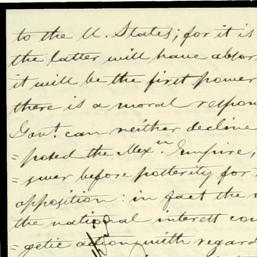 to the U. States; for it is
the latter will have absor
it will be the first power
there is a moral respon
Govt. can neither decline
=posed the Mexn Empire,
=swer before posterity for
opposition: in fact the
the national interest cou
=getic action, with regard